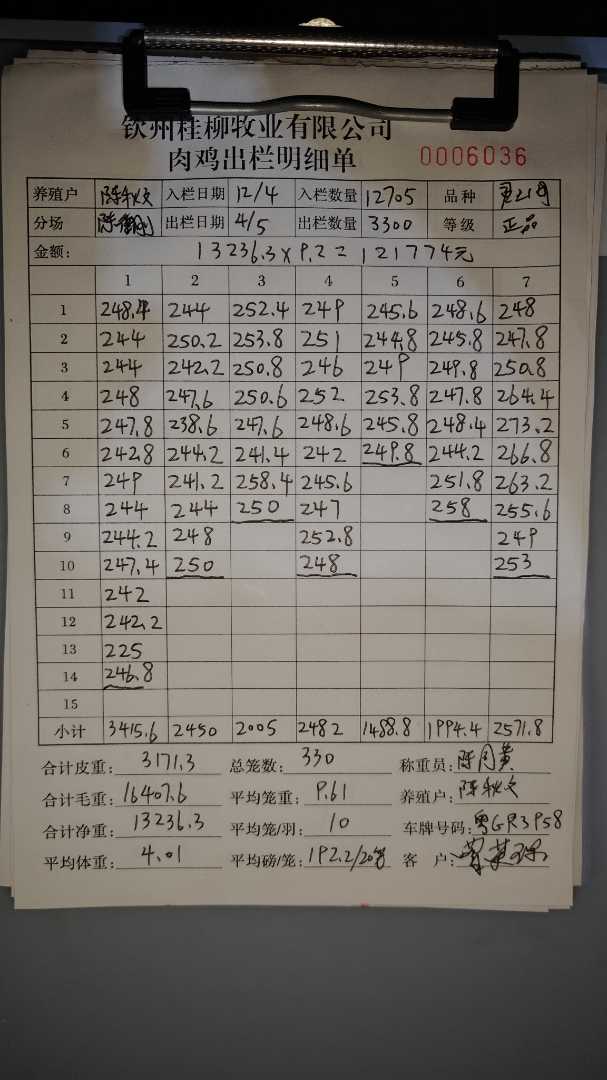 钦州桂柳牧业有限公司
肉鸡出栏明细单 0006036
养殖户 陈秋文 入栏日期 12/4 入栏数量 12705 品种
分场 出栏日期 4/5 出栏数量 3300 等级 正品
金额: 13236.3×9.2=121774元
1 2 3 4 5 6 7
1 248.4 244 252.4 249 245.6 248.6 248
2 244 250.2 253.8 251 244.8 245.8 247.8
3 244 242.2 250.8 246 249 249.8 250.8
4 248 247.6 250.6 252 253.8 247.8 264.4
5 247.8 238.6 247.6 248.6 245.8 248.4 273.2
6 242.8 244.2 241.4 242 249.8 244.2 266.8
7 249 241.2 258.4 245.6 251.8 263.2
8 244 244 250 247 258 255.6
9 244.2 248 252.8 249
10 247.4 250 248 253
11 242
12 242.2
13 225
14 246.8
15
小计 3415.6 2450 2005 2482 1488.8 1994.4 2571.8
合计皮重: 3171.3 总笼数: 330 称重员:
合计毛重: 16407.6 平均笼重: 9.61 养殖户: 陈秋文
合计净重: 13236.3 平均笼/羽: 10 车牌号码: 粤GR3P58
平均体重: 4.01 平均磅/笼: 192.2/20笼 客 户: